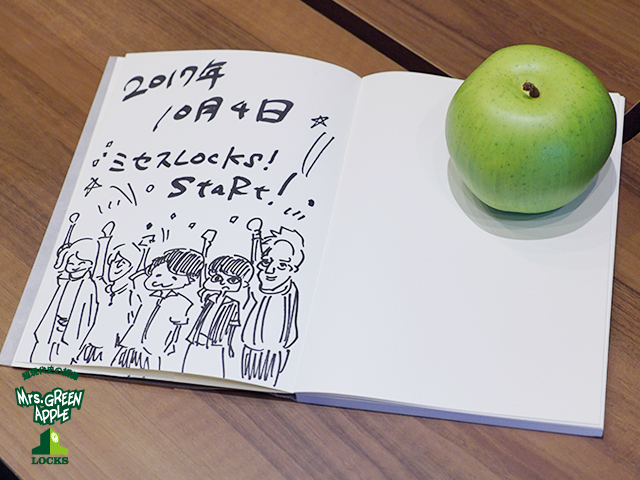 2017年
10月4日
ミセスLOCKS!
StaRt!
Mrs. GREEN
APPLE
LOCKS